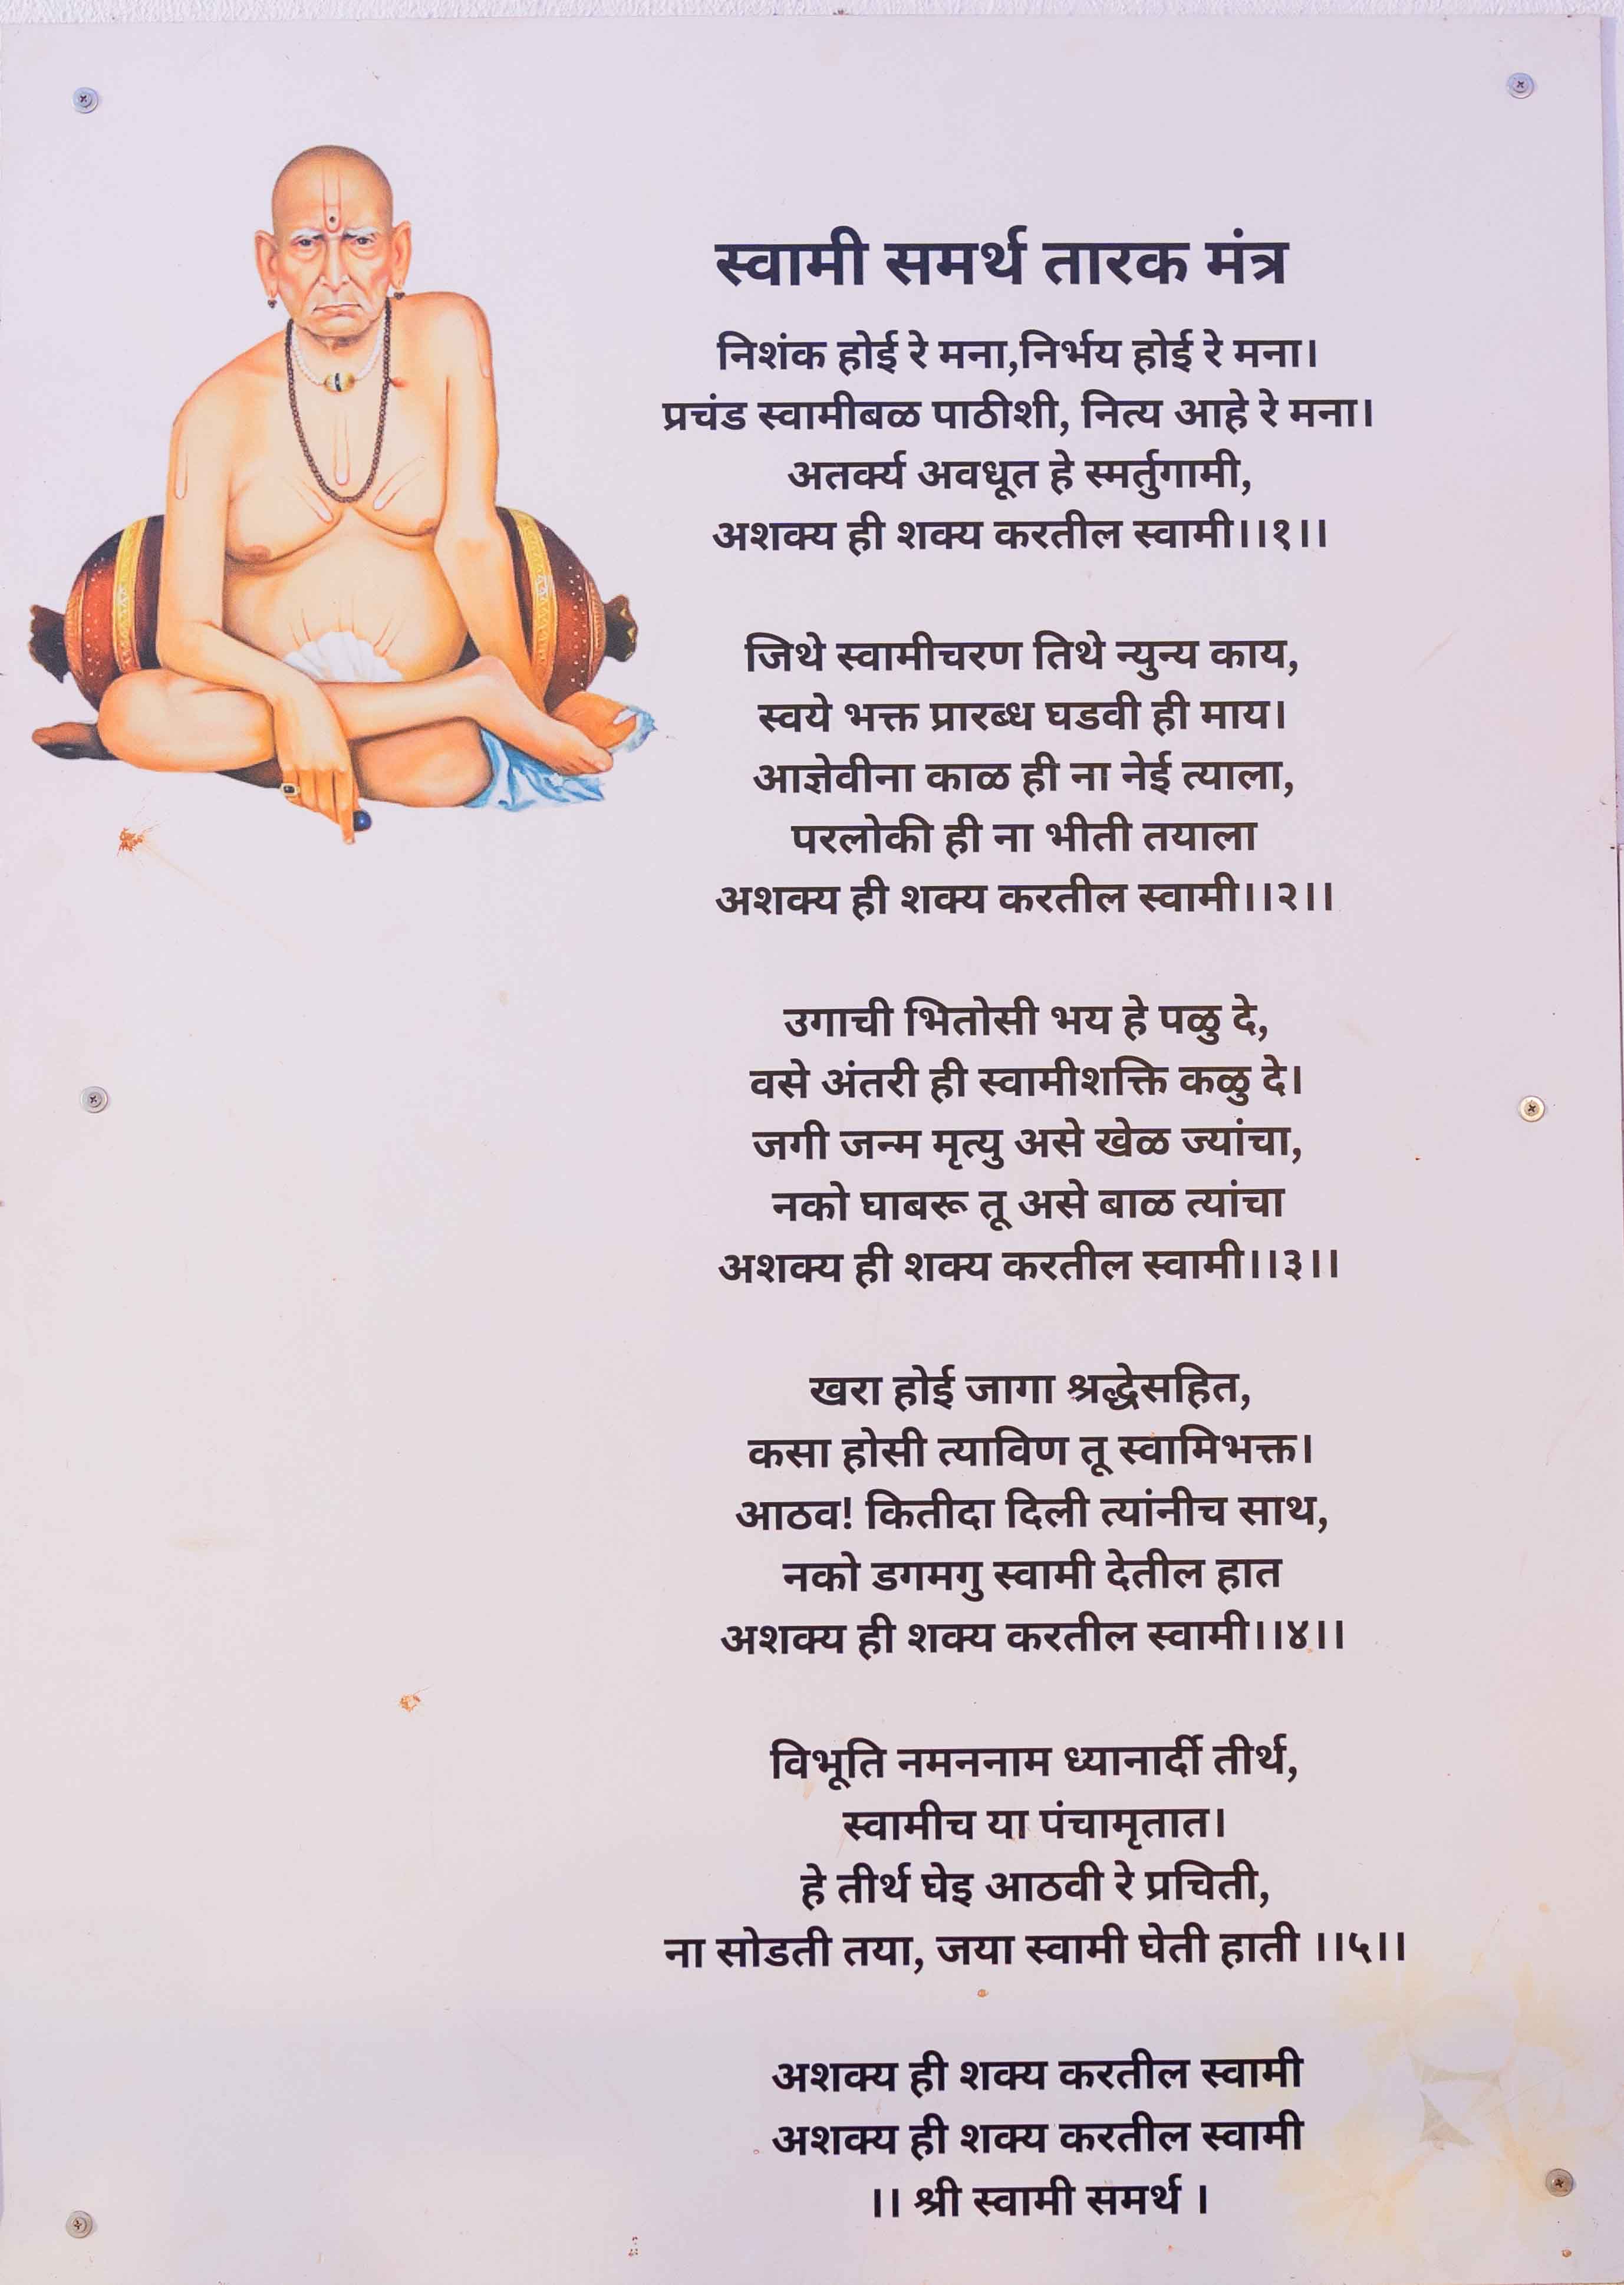 स्वामी समर्थ तारक मंत्र
निशंक होई रे मना,निर्भय होई रे मना।
प्रचंड स्वामीबळ पाठीशी, नित्य आहे रे मना।
अतर्क्य अवधूत हे स्मर्तुगामी,
अशक्य ही शक्य करतील स्वामी।।१।।
जिथे स्वामीचरण तिथे न्युन्य काय,
स्वये भक्त प्रारब्ध घडवी ही माय।
आज्ञेवीना काळ ही ना नेई त्याला,
परलोकी ही ना भीती तयाला
अशक्य ही शक्य करतील स्वामी।।२।।
उगाची भितोसी भय हे पळु दे,
वसे अंतरी ही स्वामीशक्ति कळु दे।
जगी जन्म मृत्यु असे खेळ ज्यांचा,
नको घाबरू तू असे बाळ त्यांचा
अशक्य ही शक्य करतील स्वामी।।३।।
खरा होई जागा श्रद्धेसहित,
कसा होसी त्याविण तू स्वामिभक्त।
आठव! कितीदा दिली त्यांनीच साथ,
नको डगमगु स्वामी देतील हात
अशक्य ही शक्य करतील स्वामी।।४।।
विभूति नमननाम ध्यानार्दी तीर्थ,
स्वामीच या पंचामृतात।
हे तीर्थ घेइ आठवी रे प्रचिती,
ना सोडती तया, जया स्वामी घेती हाती ।।५।।
अशक्य ही शक्य करतील स्वामी
अशक्य ही शक्य करतील स्वामी
।। श्री स्वामी समर्थ ।